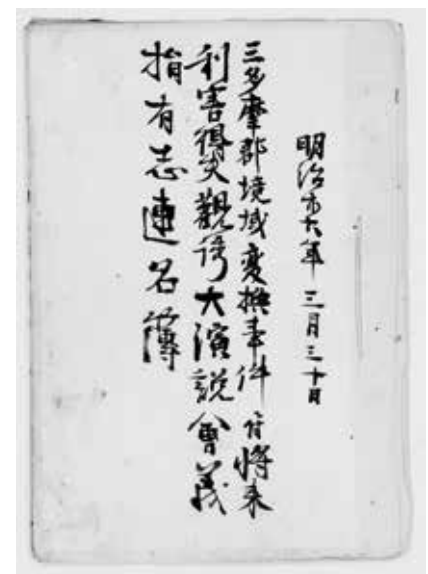 明治廿六年三月三十日
三多摩郡境域変換事件付将来
利害得失観誘大演説会義
捐有志連名簿